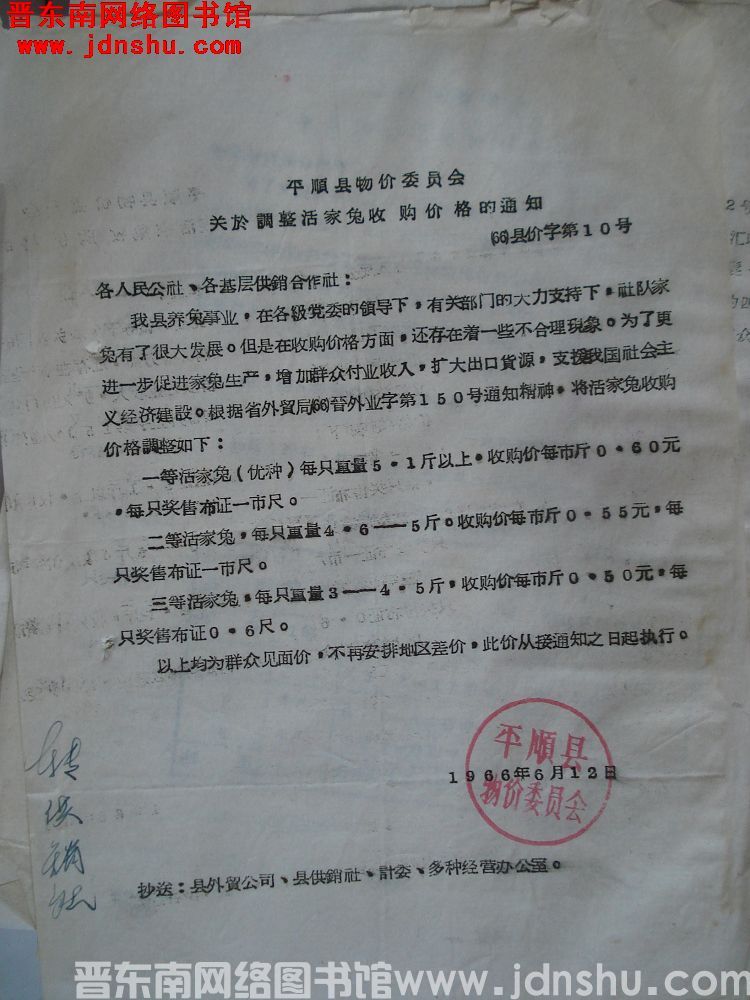 晋东南网络图书馆
www.jdnshu.com
平順县物价委员会
关於調整活家兔收购价格的通知
(66)县价字第10号
各人民公社、各基层供銷合作社：
我县养兔事业，在各級党委的領导下，有关部门的大力支持下，社队家
兔有了很大发展。但是在收购价格方面，还存在着一些不合理現象。为了更
进一步促进家兔生产，增加群众付业收入，扩大出口貨源，支援我国社会主
义经济建設。根据省外貿局(66)晋外业字第150号通知精神，将活家兔收购
价格調整如下：
一等活家兔（优种）每只重量5·1斤以上，收购价每市斤0·60元
，每只奖售布证一市尺。
二等活家兔，每只重量4·6——5斤。收购价每市斤0·55元，每
只奖售布证一市尺。
三等活家兔，每只重量3——4·5斤，收购价每市斤0·50元，每
只奖售布证0·6尺。
以上均为群众见面价，不再安排地区差价，此价从接通知之日起执行。
平順县
物价委員会
1966年6月12日
转供销社
抄送：县外貿公司、县供銷社、計委、多种经营办公室。
晋东南网络图书馆www.jdnshu.com